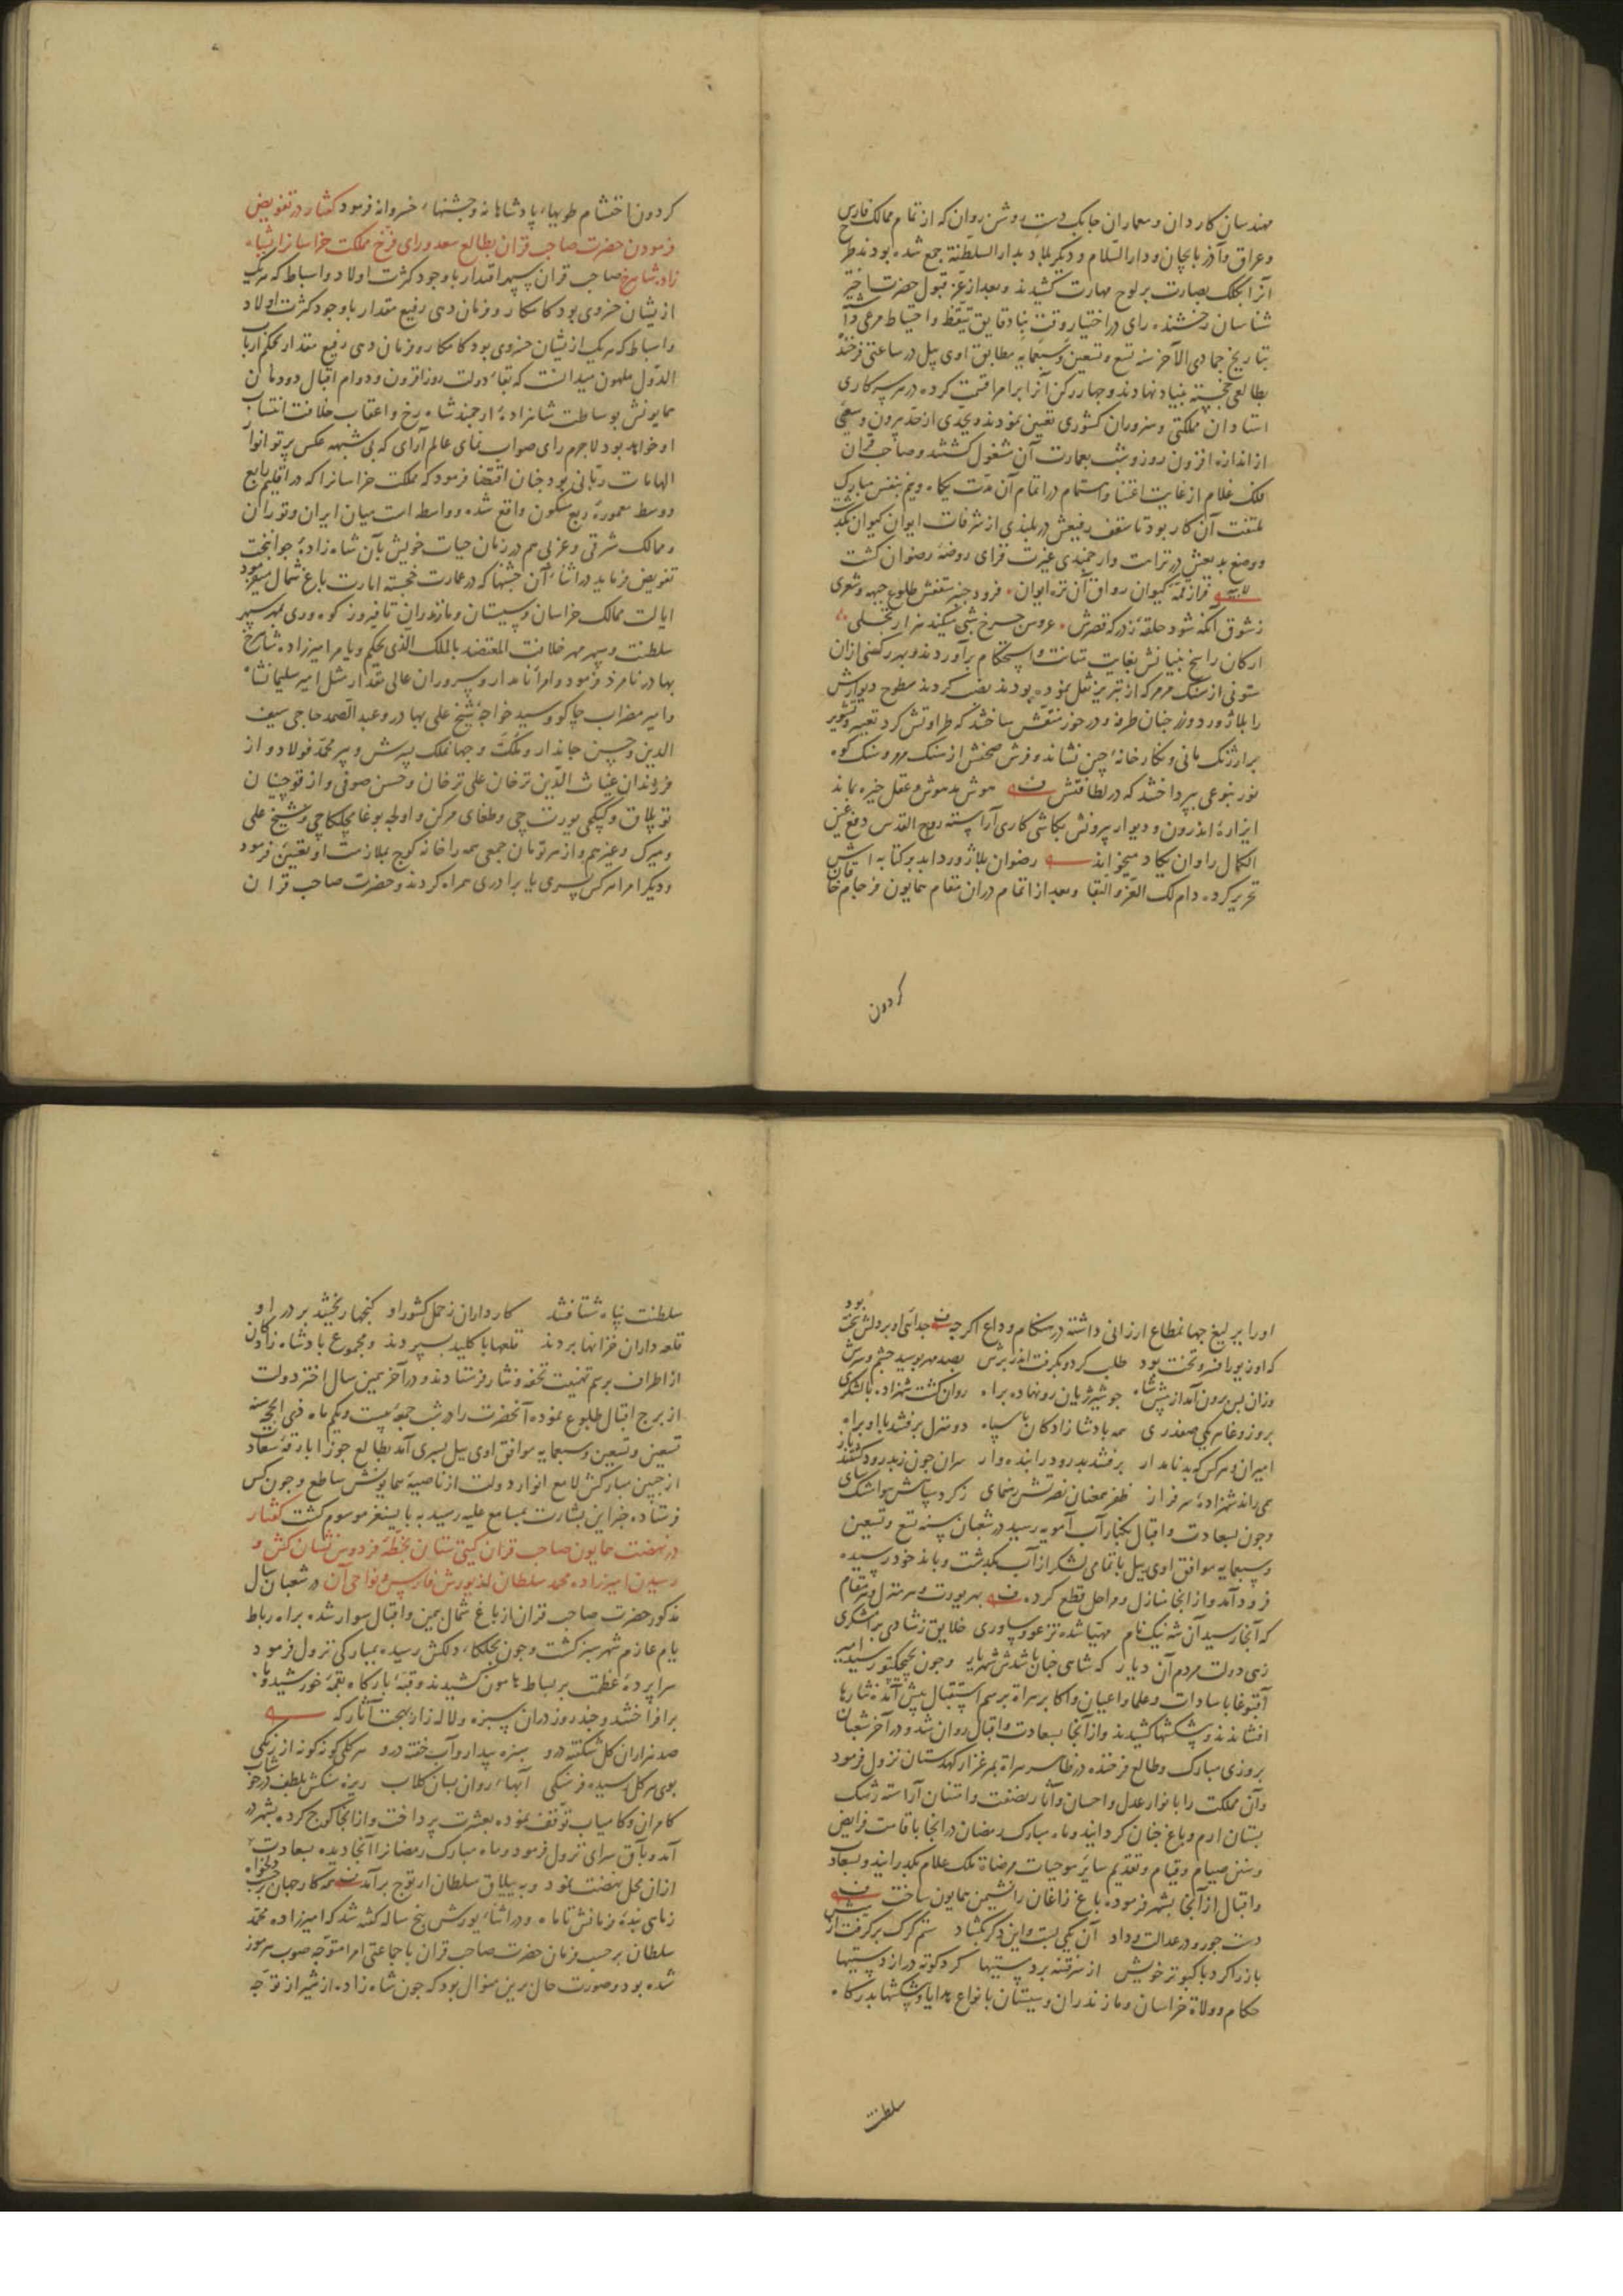 مهندسان کاردان و معماران چابک دست روشن روان که از تمام ممالک فارس
و عراق و آذربایجان و دارالسلام و دیکر بلاد بدارالسلطنة جمع شده بودند طرح
آنرا بکلک بصارت بر لوح مهارت کشیدند و بعد از عز قبول حضرت اختر
شناسان رخشنده رای در اختیار وقت بنا دقایق تیقظ و احتیاط مرعی داشته
بتاریخ جمادی الآخر سنه تسع و تسعین و سبعمایه مطابق اوی ییل در ساعتی فرخنده
بطالعی خجسته بنیاد نهادند و چهار رکن آنرا بر امرا قسمت کرده در هر سرکاری
استادان مملکتی و هنروران کشوری تعین نمودند و بجدی از حد بیرون و سعی
از اندازه افزون روز و شب بعمارت آن مشغول کشتند و صاحب قران
فلک غلام از غایت اعتنا و اهتمام در اتمام آن مدت یکماه و نیم بنفس مبارک
ملتفت آن کار بود تا سقف رفیعش در بلندی از شرفات ایوان کیوان بگذشت
و وضع بدیعش در نزاهت و ارجمندی غیرت فزای روضه رضوان کشت
فراز قمه کیوان رواق آن نزه ایوان فرود جنبه سقفش طلوع جبهه و شعری
ز شوق آنکه شود حلقه ز درکه قصرش عروس چرخ شبی بشکند هزار تجلی
ارکان راسخ بنیانش بغایت متانت و استحکام برآوردند و بهر رکنی از آن
ستونی از سنک مرمر که از تبریز نقل نموده بودند نصب کردند سطوح دیوارش
را بلاژورد و زر چنان طرفه و در خور منقش ساختند که طراوتش کرد تعییر و تشویر
بر ارژنک مانی و نکارخانه چین نشاند و فرش صحنش از سنک مرمر و سنک کوه
نور بنوعی بپرداختند که در لطافتش هوش مدهوش و عقل خیره بماند
ایزاره اندرون و دیوار بیرونش بکاشی کاری آراسته روح القدس دفع عین
الکمال را وان یکاد میخواند رضوان بلاژورد ابد بر کتابه اش
تحریر کرده دام لک العز و البقا و بعد از اتمام در ان مقام همایون فرجام خاقان
کردون
کردون احتشام طویهاء پادشاهانه و جشنهاء خسروانه فرمود کفتار در تفویض
فرمودن حضرت صاحب قران بطالع سعد و رای فرخ مملکت خراسانرا بشاه
زاده شاهرخ صاحب قران سپهر اقتدار با وجود کثرت اولاد و اسباط که هر یک
از یشان خسروی بود کامکار و فرمان دهی رفیع مقدار با وجود کثرت اولاد
و اسباط که هر یک از یشان خسروی بود کامکار و فرمان دهی رفیع مقدار بحکم ارباب
الدول ملهمون میدانست که بقاء دولت روز افزون و دوام اقبال دودمان
همایونش بوساطت شاهزاده ارجمند شاه رخ و اعقاب خلافت انتساب
او خواهد بود لاجرم رای صواب نمای عالم آرای که بی شبهه عکس پرتو انوار
الهامات ربانی بود چنان اقتضا فرمود که مملکت خراسانرا که در اقلیم رابع
و وسط معموره ربع مسکون واقع شده و واسطه است میان ایران و توران
و ممالک شرقی و غربی هم در زمان حیات خویش بآن شاه زاده جوانبخت
تفویض فرماید در اثناء آن جشنها که در عمارت خجسته امارت باغ شمال میفرمود
ایالت ممالک خراسان و سیستان و مازندران تا فیروزکوه و ری بمهر سپهر
سلطنت و سپهر مهر خلافت المعتضد بالملک الذی یحکم و یامر امیرزاده شاهرخ
بهادر نامزد فرمود و امراء نامدار و سروران عالی مقدار مثل امیر سلیمانشاه
و امیر مضراب چاکو و سید خواجه شیخ علی بهادر و عبدالصمد حاجی سیف
الدین و حسین جاندار و ملکت و جهانملک پسرش و پیر محمد فولاد و از
فرزندان غیاث الدین ترخان علی ترخان و حسن صوفی و از قوچینان
توپلاق و کپکچی یورت چی و طغای مرکن و اولجه بوغا مچلکاچی و شیخ علی
و میرک و غیرهم و از هر تومان جمعی همه را خانه کوچ بملازمت او تعیین فرمود
و دیکر امرا هر کس پسری یا برادری همراه کردند و حضرت صاحب قران
او را یرلیغ جهانمطاع ارزانی داشته در هنکام وداع اکرچه جدائی او بر دلش سخت بود
که او زیور افسر و تخت بود طلب کرد و بکرفت اندر برش بصد مهر بوسید چشم و سرش
وزان پس برون آمد از پیش شاه چو شیر ژیان رو نهاده براه روان کشت شهزاده با لشکری
بروز وغا هر یکی صفدری همه پادشازادکان با سپاه دو منزل برفتند با او براه
امیران و هر کس که بد نامدار برفتند بدرود را بنده وار سران چون ز بدرود کشتند باز
همی راند شهزاده سرفراز ظفر همعنان نصرتش رهنمای ز کرد سپاهش هوا مشک سای
و چون بسعادت و اقبال بکنار آب آمویه رسید در شعبان سنه تسع و تسعین
و سبعمایه موافق اوی ییل با تمامی لشکر از آب بگذشت و باندخود رسیده
فرود آمد و از انجا منازل و مراحل قطع کرده بهر یورت و هر منزل و هر مقام
که آنجا رسید آن شه نیک نام مهیا شده نزغو و ساوری خلایق ز شادی برامشکری
زهی دولت مردم آن دیار که شاهی چنان باشدش شهریار و چون بچیچکتو رسید امیر
آقبوغا با سادات و علما و اعیان و اکابر هراة برسم استقبال پیش آمده نثارها
افشاندند و پیشکشها کشیدند و از آنجا بسعادت و اقبال روان شد و در آخر شعبان
بروزی مبارک و طالع فرخنده در ظاهر هراة بمرغزار کهدستان نزول فرمود
و آن مملکت را بانوار عدل و احسان و آثار نصفت و امتنان آراسته رشک
بستان ارم و باغ جنان کردانید و ماه مبارک رمضان در انجا باقامت فرایض
و سنن صیام و قیام و تقدیم سایر موجبات مرضاة ملک علام بکذرانید و بسعادت
و اقبال از آنجا بشهر فرموده باغ زاغان را نشیمن همایون ساخت
دست جور و در عدالت و داد آن یکی بست و این دکر بکشاد ستم کرک بر کرفت از میش
باز را کرد با کبوتر خویش از سر فتنه برد مستیها کرد کوته دراز دستیها
حکام و ولاة خراسان و مازندران و سیستان بانواع هدایا و پیشکشها بدرکاه
سلطنت
سلطنت پناه شتافتند کارداران ز حمل کشور او کنجها ریختند بر در او
قلعه داران خزانها بردند قلعها با کلید بسپردند و مجموع پادشاه زادکان
از اطراف برسم تهنیت تحفه و نثار فرستادند و در آخر همین سال اختر دولت
از برج اقبال طلوع نموده آنحضرت را در شب جمعه بیست و یکم ماه ذی الحجه سنه
تسعین و تسعین و سبعمایه موافق اوی ییل پسری آمد بطالع جوزا بارقه سعادت
از جبین مبارکش لامع انوار دولت از ناصیه همایونش ساطع و چون کس
فرستاده خبر این بشارت بمسامع علیه رسید به بایسنغر موسوم کشت کفتار
در نهضت همایون صاحب قران کیتی ستان بخطه فردوس نشان کش و
رسیدن امیرزاده محمد سلطان از یورش فارس و نواحی آن در شعبان سال
مذکور حضرت صاحب قران از باغ شمال بیمن و اقبال سوار شده براه رباط
یام عازم شهر سبز کشت و چون بجلکاء دلکش رسیده بمبارکی نزول فرمود
سراپرده عظمت بر بساط هامون کشیدند و قبه بارکاه بقمه خورشید و ماه
برافراختند و چند روز در ان سبزه و لاله زار بهجت آثار که
صد هزاران کل شکفته درو سبزه بیدار و آب خفته درو هر کلی کونه کونه از رنکی
بوی هر کل رسیده فرسنکی آبهاء روان بسان کلاب ریزه سنکش بلطف در خوشاب
کامران و کامیاب توقف نموده بعشرت پرداخت و از انجا کوچ کرده بشهر در
آمد و بآق سرای نزول فرمود و ماه مبارک رمضانرا آنجا دیده بسعادت
از ان محل نهضت نمود و به ییلاق سلطان ارتوج برآمد همه کار جهان بر حسب دلخواه
ز ماهی بنده فرمانش تا ماه و در اثناء یورش پنج ساله کفته شد که امیرزاده محمد
سلطان بر حسب فرمان حضرت صاحب قران با جماعتی امرا متوجه صوب هرموز
شده بود و صورت حال برین منوال بود که چون شاه زاده از شیراز توجه